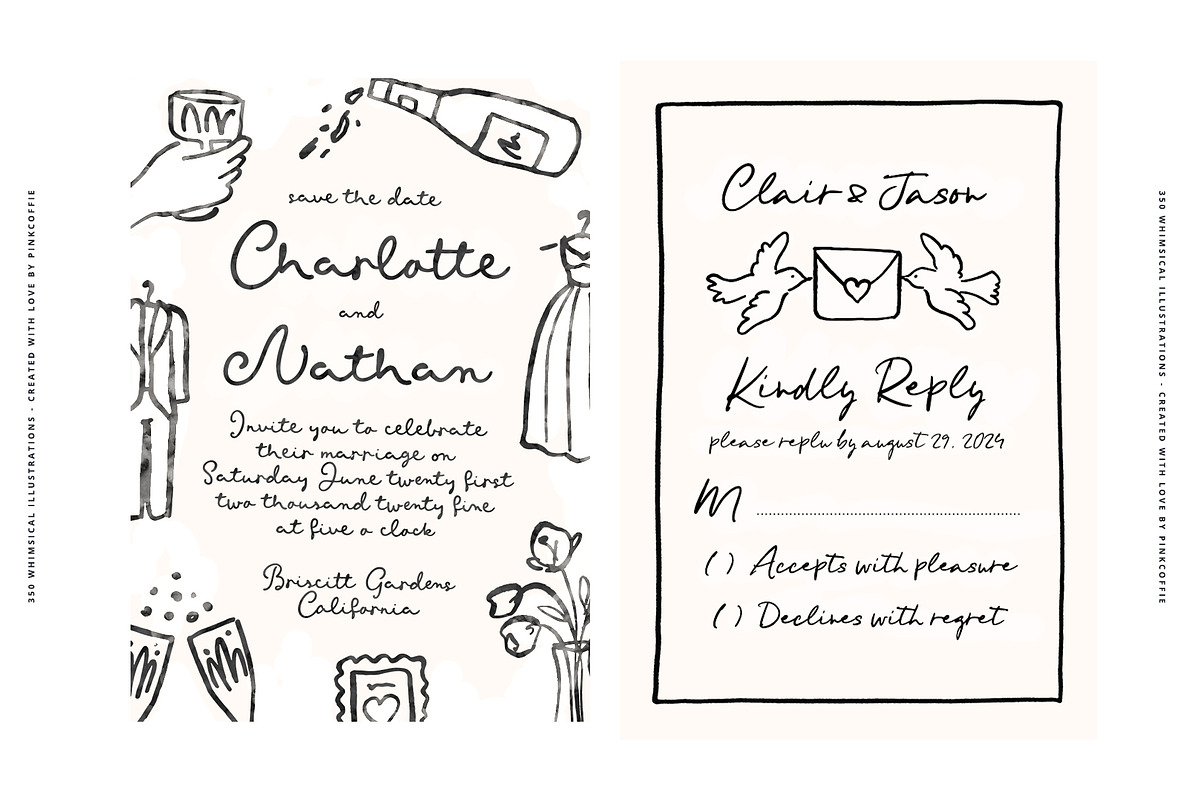 350 WHIMSICAL ILLUSTRATIONS - CREATED WITH LOVE BY PINKCOFFIE
save the date
Charlotte
and
Nathan
Invite you to celebrate
their marriage on
Saturday June twenty first
two thousand twenty fine
at five o clock
Briscitt Gardens
California
Clair & Jason
Kindly Reply
please replu by august 29. 2024
M
( ) Accepts with pleasure
( ) Declines with regret
350 WHIMSICAL ILLUSTRATIONS - CREATED WITH LOVE BY PINKCOFFIE